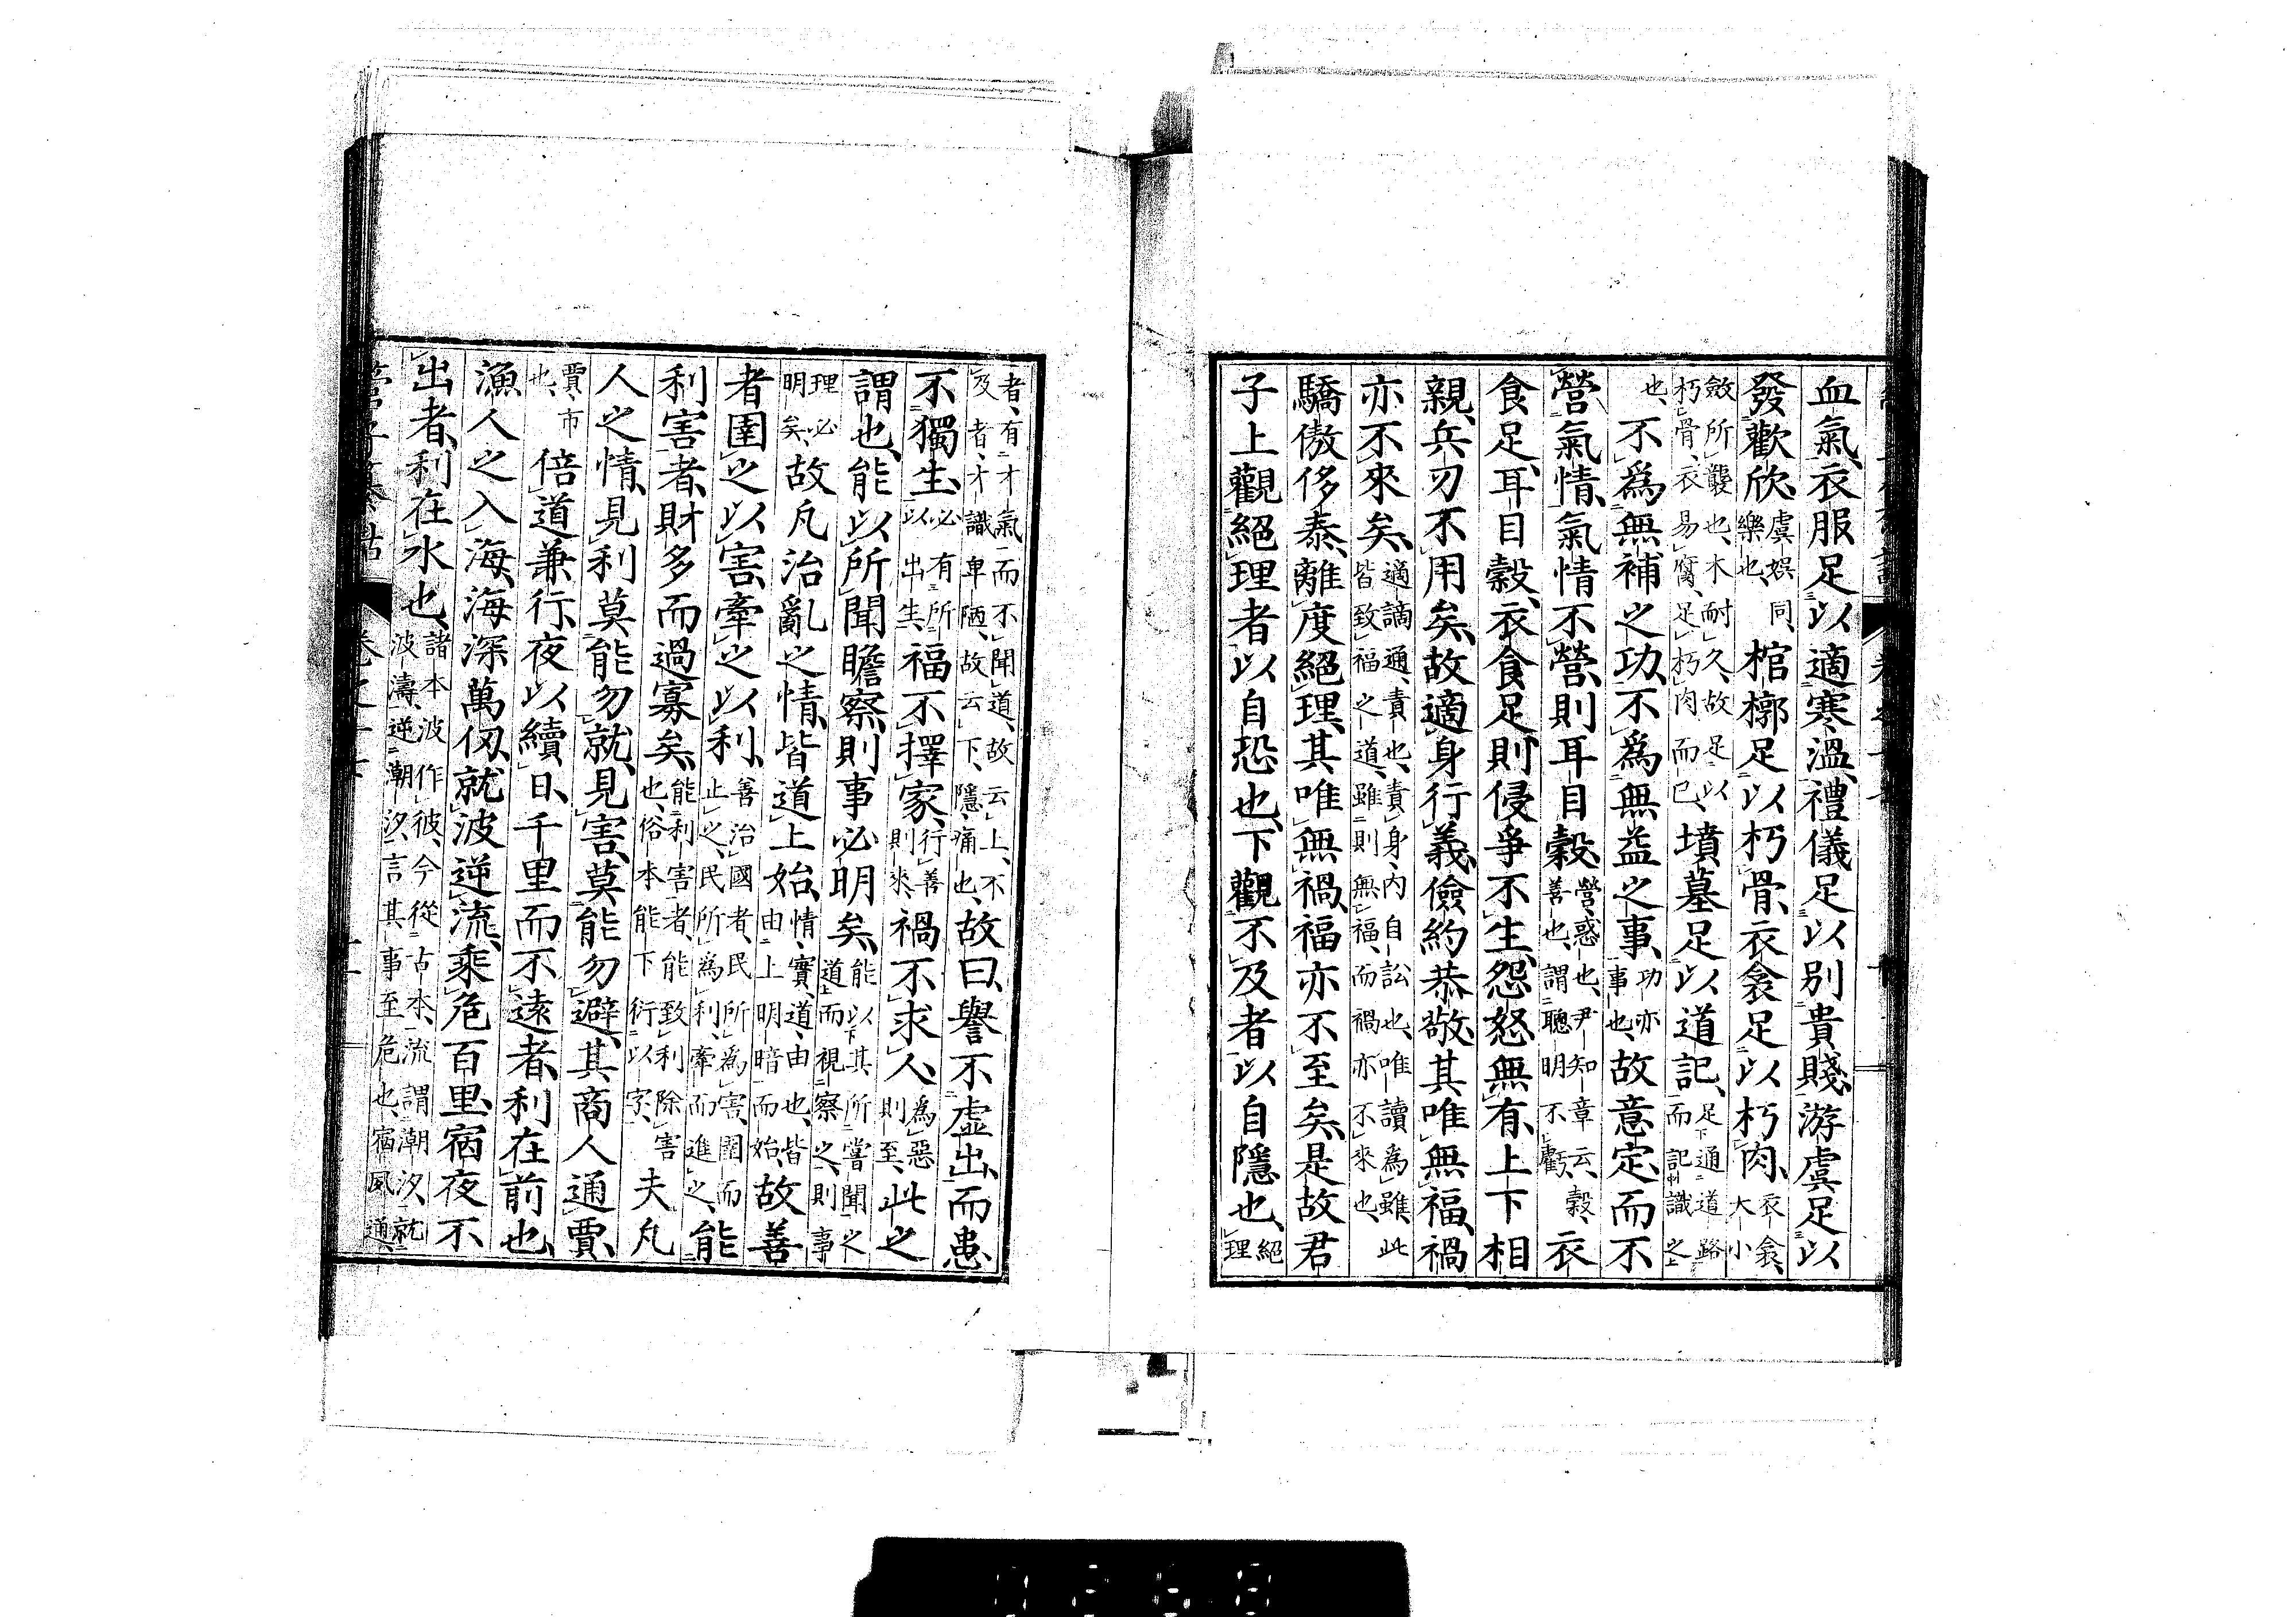 血氣、衣服足以適寒溫、禮儀足以別貴賤、游虞足以
發歡欣、虞娛同、樂也、棺槨足以朽骨、衣衾足以朽肉、衣衾、大小
斂所襲也、木耐久、故足以朽骨、衣易腐、足朽肉而已、墳墓足以道記、足下通道路而記中識之上
也、不爲無補之功、不爲無益之事、功亦事也、故意定而不
營氣情、氣情不營、則耳目穀、營、惑也、尹知章云、穀、善也、謂聰明不虧、衣
食足、耳目穀、衣食足、則侵爭不生、怨怒無有、上下相
親、兵刃不用矣、故適身行義、儉約恭敬、其唯無福、禍
亦不來矣、適謫通、責也、責身、內自訟也、唯讀爲雖、此皆致福之道、雖則無福、而禍亦不來也、
驕傲侈泰、離度絕理、其唯無禍、福亦不至矣、是故君
子上觀絕理者以自恐也、下觀不及者以自隱也、絕理
者、有才氣而不聞道、故云上、不及者、才識卑陋、故云下、隱、痛也、故曰、譽不虛出、而患
不獨生、必有所以出生、福不擇家、行善則來、禍不求人、爲惡則至、此之
謂也、能以所聞瞻察、則事必明矣、能以其所嘗聞之道而下視察之、則事
理必明矣、故凡治亂之情、皆道上始、情、實、道、由也、皆由上明暗而始、故善
者圉之以害、牽之以利、善治國者、民所爲害、閉而止之、民所爲利、牽而進之、能
利害者、財多而過寡矣、能利害者、能致利除害也、俗本能下衍以字、夫凡
人之情、見利莫能勿就、見害莫能勿避、其商人通賈、
賈、市也、倍道兼行、夜以續日、千里而不遠者、利在前也、
漁人之入海、海深萬仭、就波逆流、乘危百里、宿夜不
出者、利在水也、諸本波作彼、今從古本、流謂潮汐、就波濤、逆潮汐、言其事至危也、宿夙通、